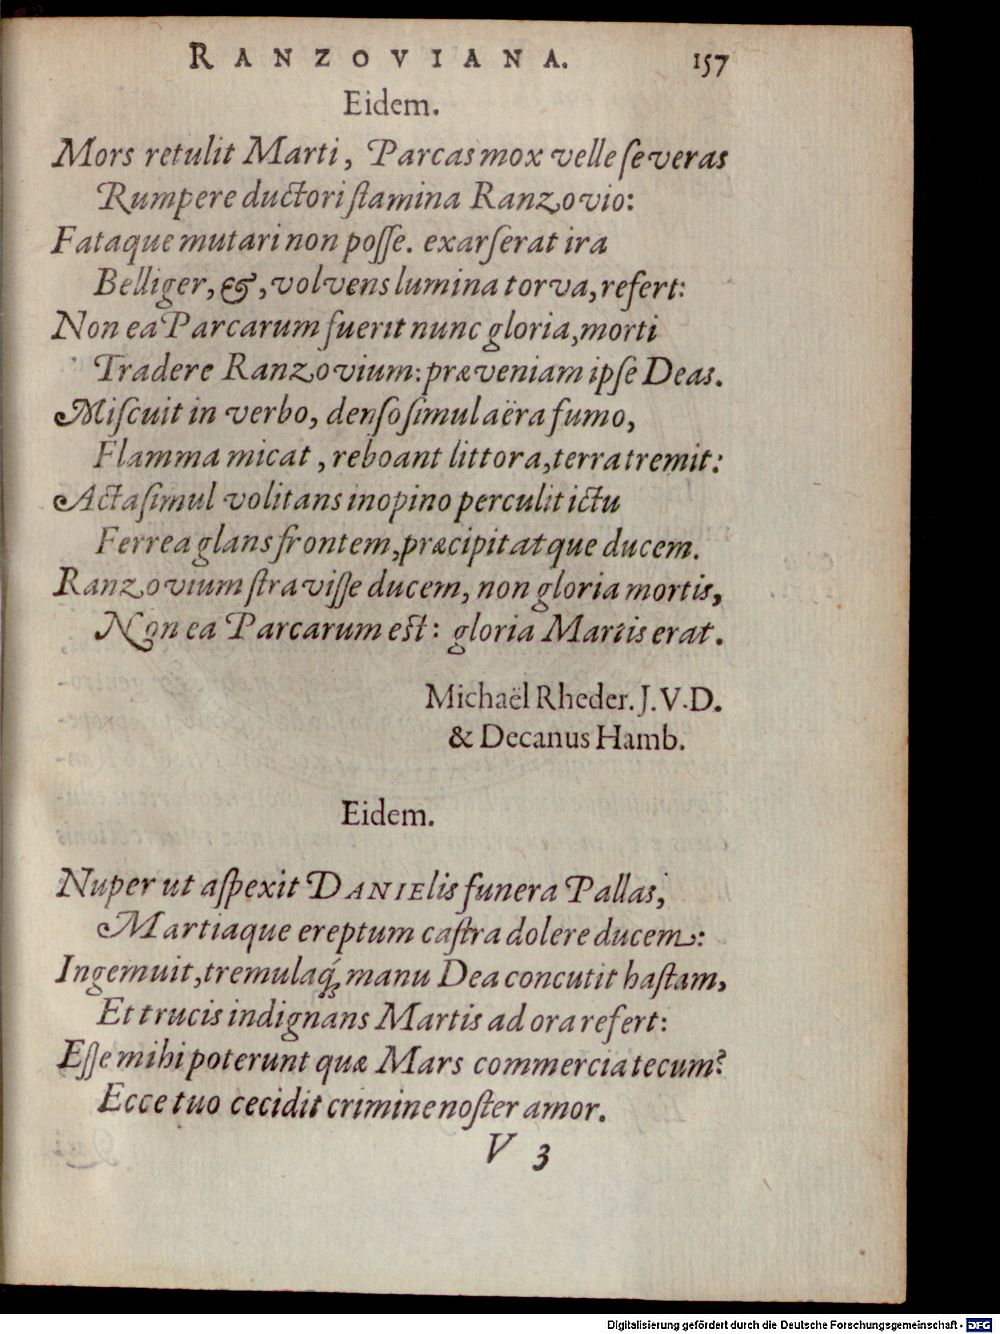 RANZOVIANA. 157
Eidem.
Mors retulit Marti, Parcas mox velle ſeveras
Rumpere ductori ſtamina Ranzovio:
Fataque mutari non poſſe. exarſerat ira
Belliger, &, volvens lumina torva, refert:
Non ea Parcarum fuerit nunc gloria, morti
Tradere Ranzovium: præveniam ipſe Deas.
Miſcuit in verbo, denſo ſimul aëra fumo,
Flamma micat, reboant littora, terra tremit:
Acta ſimul volitans inopino perculit ictu
Ferrea glans frontem, præcipitatque ducem.
Ranzovium ſtraviſſe ducem, non gloria mortis,
Non ea Parcarum eſt: gloria Martis erat.
Michaël Rheder. J.V.D.
& Decanus Hamb.
Eidem.
Nuper ut aſpexit DANIElis funera Pallas,
Martiaque ereptum caſtra dolere ducem:
Ingemuit, tremulaq́; manu Dea concutit haſtam,
Et trucis indignans Martis ad ora refert:
Eſſe mihi poterunt quæ Mars commercia tecum?
Ecce tuo cecidit crimine noſter amor.
V 3
Digitalisierung gefördert durch die Deutsche Forschungsgemeinschaft - DFG